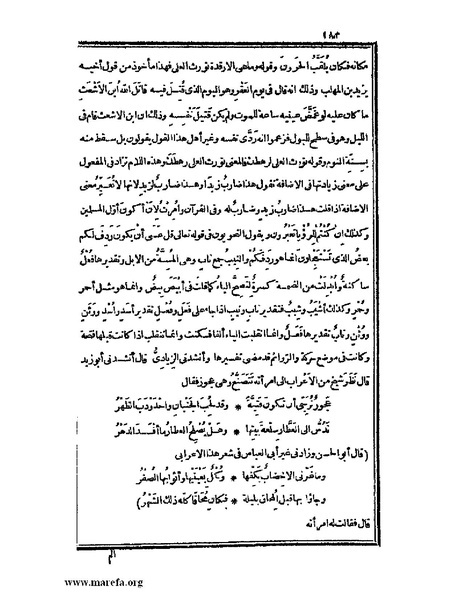 ١٨٣
مكانه فكان يُلقَّبُ الحَرونَ وقوله وما هى الا رقدة تورث العلى فهذا مأخوذ من قول أخيه
يزيد بن المهلب وذلك انه قال فى يوم العَقْر وهو اليوم الذى قُتِلَ فيه قاتَلَ اللهُ ابنَ الاشعثِ
ما كان عليه لو غَمَّضَ عينيه ساعة للموت ولم يكن قَتيلَ نَفْسِه وذلك ان ابن الاشعث قام فى
الليل وهو فى سطح للبول فزعموا انه رَدَّى نفسه وغيرأهل هذا القول يقولون بل سقط منه
بِسِنَةِ النوم وقوله تورث العلى لرهطك فالمعنى تورث العلى رهطَك وهذه اللام تزاد فى المفعول
على معنى زيادتها فى الاضافة تقول هذا ضاربٌ زيداً وهذا ضاربٌ لزيد لانها لا تُغَيِّرُ معنى
الاضافة اذا قلت هذا ضاربُ زيدٍ وضاربٌ له وفى القرآن وأُمِرْتُ لأَن أكونَ أوّلَ المسلمين
وكذلك ان كُنْتُمْ للرُّؤْيا تَعْبُرُون ويقول النحويون فى قوله تعالى قل عَسى أَن يكونَ رَدِفَ لكم
بعضُ الذى تَسْتَعْجِلون انما هو رَدِفَكم والنِّيبُ جمع نابٍ وهى المُسِنَّةُ من الابل وتقديرها فُعْلٌ
ساكنةٌ وأُبْدِلَتْ من الضمة كسرةٌ لتَصِحَّ الياءُ كما قلت فى أَبْيَضَ بِيضٌ وانما هو مثل أحمر
وحُمْرٍ وكذلك أَشْيَبُ وشِيبٌ فتقدير ناب ونيب اذا جاء على فَعَلٍ وفُعْلٍ تقدير أَسَدٍ وأُسْدٍ ووَثَنٍ
ووُثْنٍ ونابٌ تقديرها فَعَلٌ وانما انقلبت الياء ألفا فسكنت وانما تنقلب اذا كانت قبلها فتحة
وكانت فى موضع حركة والرّوائم قد مضى تفسيرها وأنشدنى الزيادىُّ قال أنشدنى أبو زيد
قال نَظَرَ شيخٌ من الأعراب الى امرأته تَتَصَنَّعُ وهى عجوز فقال
عجوزٌ تُرَجّى أن تكونَ فتيَّةً * وقد لَحِبَ الجَنْبانِ واحْدَوْدَبَ الظَّهْرُ
تَدُسُّ الى العَطَّارِ سِلْعةَ بيتِها * وهل يُصْلِحُ العطّارُ ما أفسدَ الدهْرُ
(قال أبو الحسن وزادنى غير أبى العباس فى شعر هذا الاعرابى
وما غَرَّنى الا خِضابٌ بكفِّها * وكُحْلٌ بعينَيْها وأثوابُها الصُّفْرُ
وجاؤا بها قبل المُحاقِ بليلةٍ * فكان مُحاقاً كلُّه ذلك الشَّهْرُ)
قال فقالت له امرأته
الم
www.marefa.org